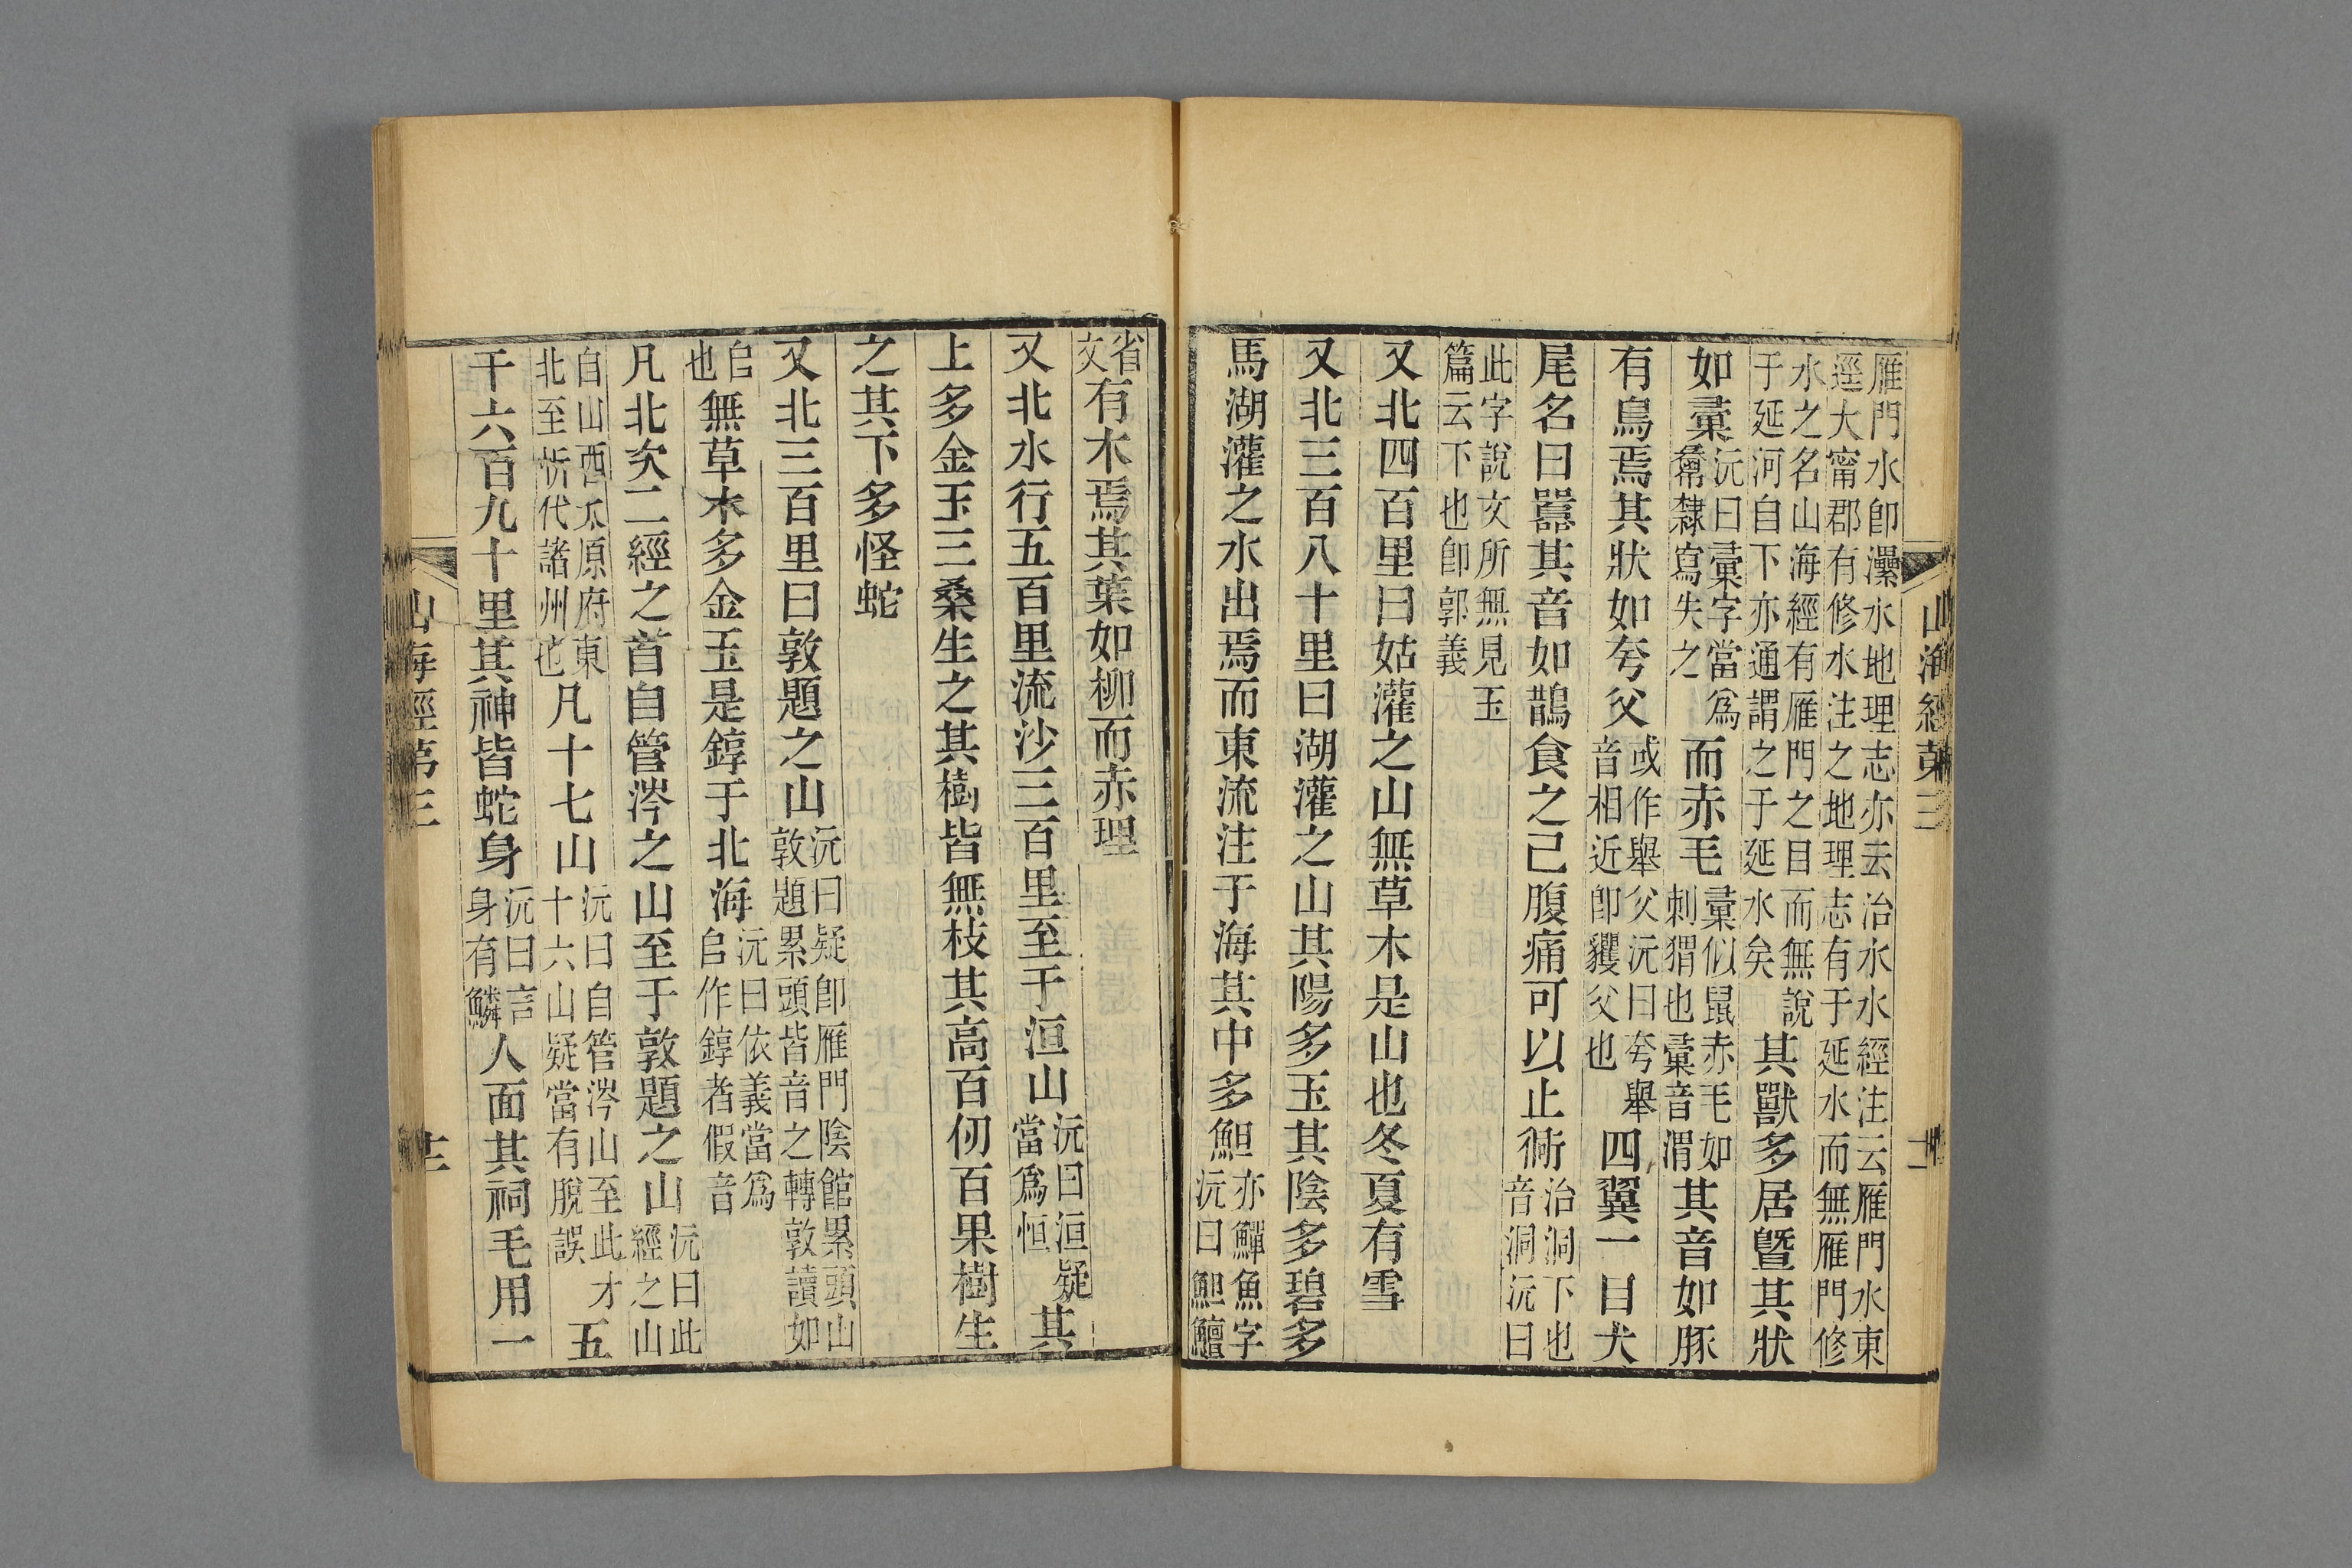 雁門水卽灅水地理志亦云治水水經注云雁門水東
逕大甯郡有修水注之地理志有于延水而無雁門修
水之名山海經有雁門之目而無說
于延河自下亦通謂之于延水矣
其獸多居曁其狀
如彙
沅曰彙字當爲
㣇隸寫失之
而赤毛
彙似鼠赤毛如
刺猬也彙音渭
其音如豚
有鳥焉其狀如夸父
或作舉父沅曰夸舉
音相近卽玃父也
四翼一目犬
尾名曰嚻其音如鵲食之已腹痛可以止衕
治洞下也
音洞沅曰
此字說文所無見玉
篇云下也卽郭義
又北四百里曰姑灌之山無草木是山也冬夏有雪
又北三百八十里曰湖灌之山其陽多玉其陰多碧多
馬湖灌之水出焉而東流注于海其中多䱇
亦鱓魚字
沅曰䱇鱣
山海經第三
省
文
有木焉其葉如柳而赤理
又北水行五百里流沙三百里至于洹山
沅曰洹疑
當爲恒
其
上多金玉三桑生之其樹皆無枝其高百仞百果樹生
之其下多怪蛇
又北三百里曰敦題之山
沅曰疑卽雁門陰館累頭山
敦題累頭皆音之轉敦讀如
𠂤
也
無草木多金玉是錞于北海
沅曰依義當爲
𠂤作錞者假音
凡北次二經之首自管涔之山至于敦題之山
沅曰此
經之山
自山西太原府東
北至忻代諸州也
凡十七山
沅曰自管涔山至此才
十六山疑當有脫誤
五
千六百九十里其神皆蛇身
沅曰言
身有鱗
人面其祠毛用一
山海經第三